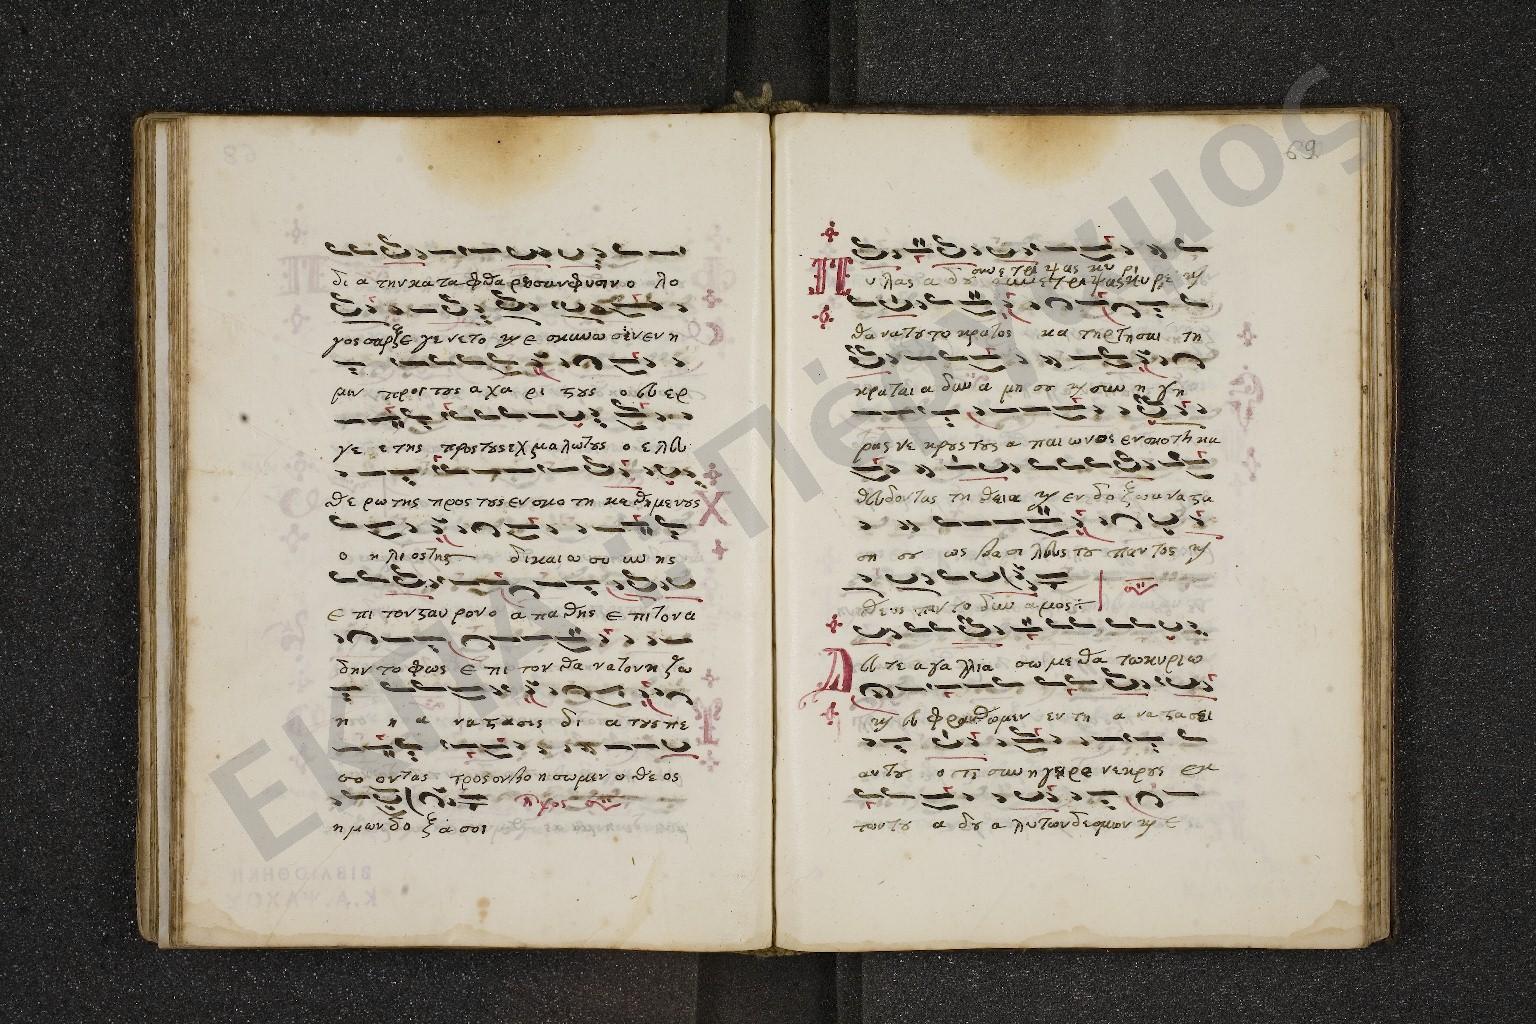 δι α την κα τα φθα ρει σαν φυσιν ο λο
γος σαρξ ε γε νε το ϗ ε σκηνω σεν εν η
μιν προς τους α χα ρι στους ο ευ ερ
γε ε της προς τους εχ μα λω τους ο ε λευ
θε ρω της προς τους εν σκο τη κα θη με νους
ο η λι ος της δι και ο συ νης
ε πι τον σταυ ρον ο α πα θης ε πι τον α
δην το φως ε πι τον θα να τον η ζω
η η α να στα σις δι α τους πε
σο ον τας προς ον βο η σω μεν ο θε ος
η μων δο ξα σοι
Ηχος
69
ον συ ε τρι ψας κυ ρι
Πυ λας α δου συν ε τρι ψας κυ ρι ε ϗ
θα να του το κρα τος κα τηρ γη σαι τη
κρα ται α δυν α μη σου ϗ συν η γη
ρας νε κρους τους α π αι ω νος εν σκο τη κα
θευ δον τας τη θει α ϗ εν δο ξω α να στα
ση σου ως βα σι λευς του παν τος ϗ
θε ος παν το δυν α μος
Δευ τε α γα λλια σω με θα τω κυ ρι ω
ϗ ευ φραν θω μεν εν τη α να στα σει
αυ του ο τι συν η γει ρε νε κρους εκ
των του α δου α λυ των δε σμων ϗ ε
ΒΙΒΛΙΟΘΗΚΗ
Κ.Α. ΨΑΧΟΥ
ΕΚΠΑ - Πέργαμος